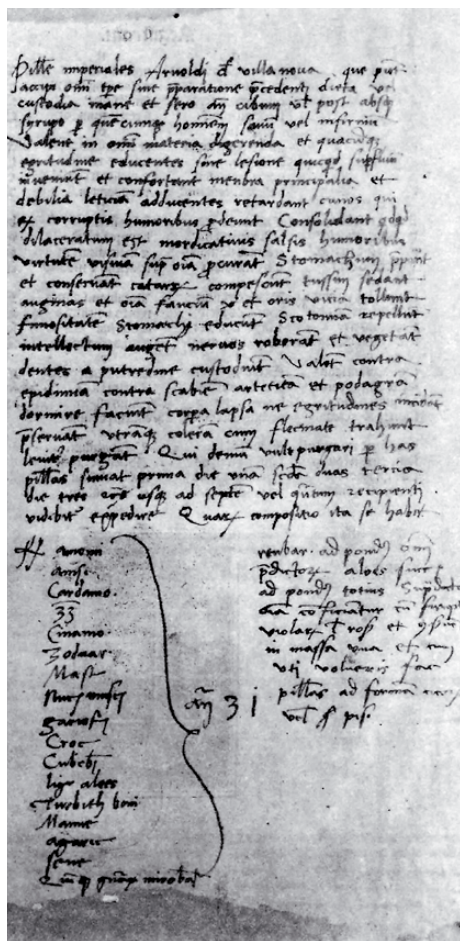 Pillule imperiales Arnoldi de villa nova que pnt
accipi omi tpe sine pparatione pcedenti dieta vel
custodia mane et sero an cibum vel post absqz
syrupo p quecumqz hominem sanum vel infirmum
Valent in omi materia digerenda et quacumqz
egritudine educentes sine lesione quicqd supfluu
inveniunt et confortant membra principalia et
debilia leticiam adducentes retardant canos qui
ex corruptis humoribus pdeunt Consolidant qqd
dilaceratum est mordicativis salsis humoribus
virtutem visivam sup oia pcurat Stomachum
et conservant catarr compescunt tussim sedant
anginas et oia faucium et oris vicia tollunt
fumositatem Stomachi educunt Scotomia repellunt
intellectum augent nervos roborat et vegetat
dentes a putredine custodiunt Valent contra
epidimiam contra scabiem artetica et podagra
dormire faciunt corpa lapsa ne egritudines incidat
pservat utramqz colera cum flecmate trahunt
leniter purgat Qui demum vult purgari p has
pillas sumat prima die una scda duas tercia
die tres usqz ad septe vel recipienti
videbit expedire Quar compositio ita se habet
amomi
anisi
Cardamo.
33
Cinamo
zoduar
Mast
Nucis musci
gariofi
Croc
Cubebi
ligni aloes
Turbith boni
Manne
agarici
sene
mirobal
an 3 i
reubar. ad pondus omi
pdictor aloes succ
ad pondus totius Supdict
oia conficiatur cu
violar ros et
in massa una et cum
uti volueris fac
pillas ad formam
vel pis.